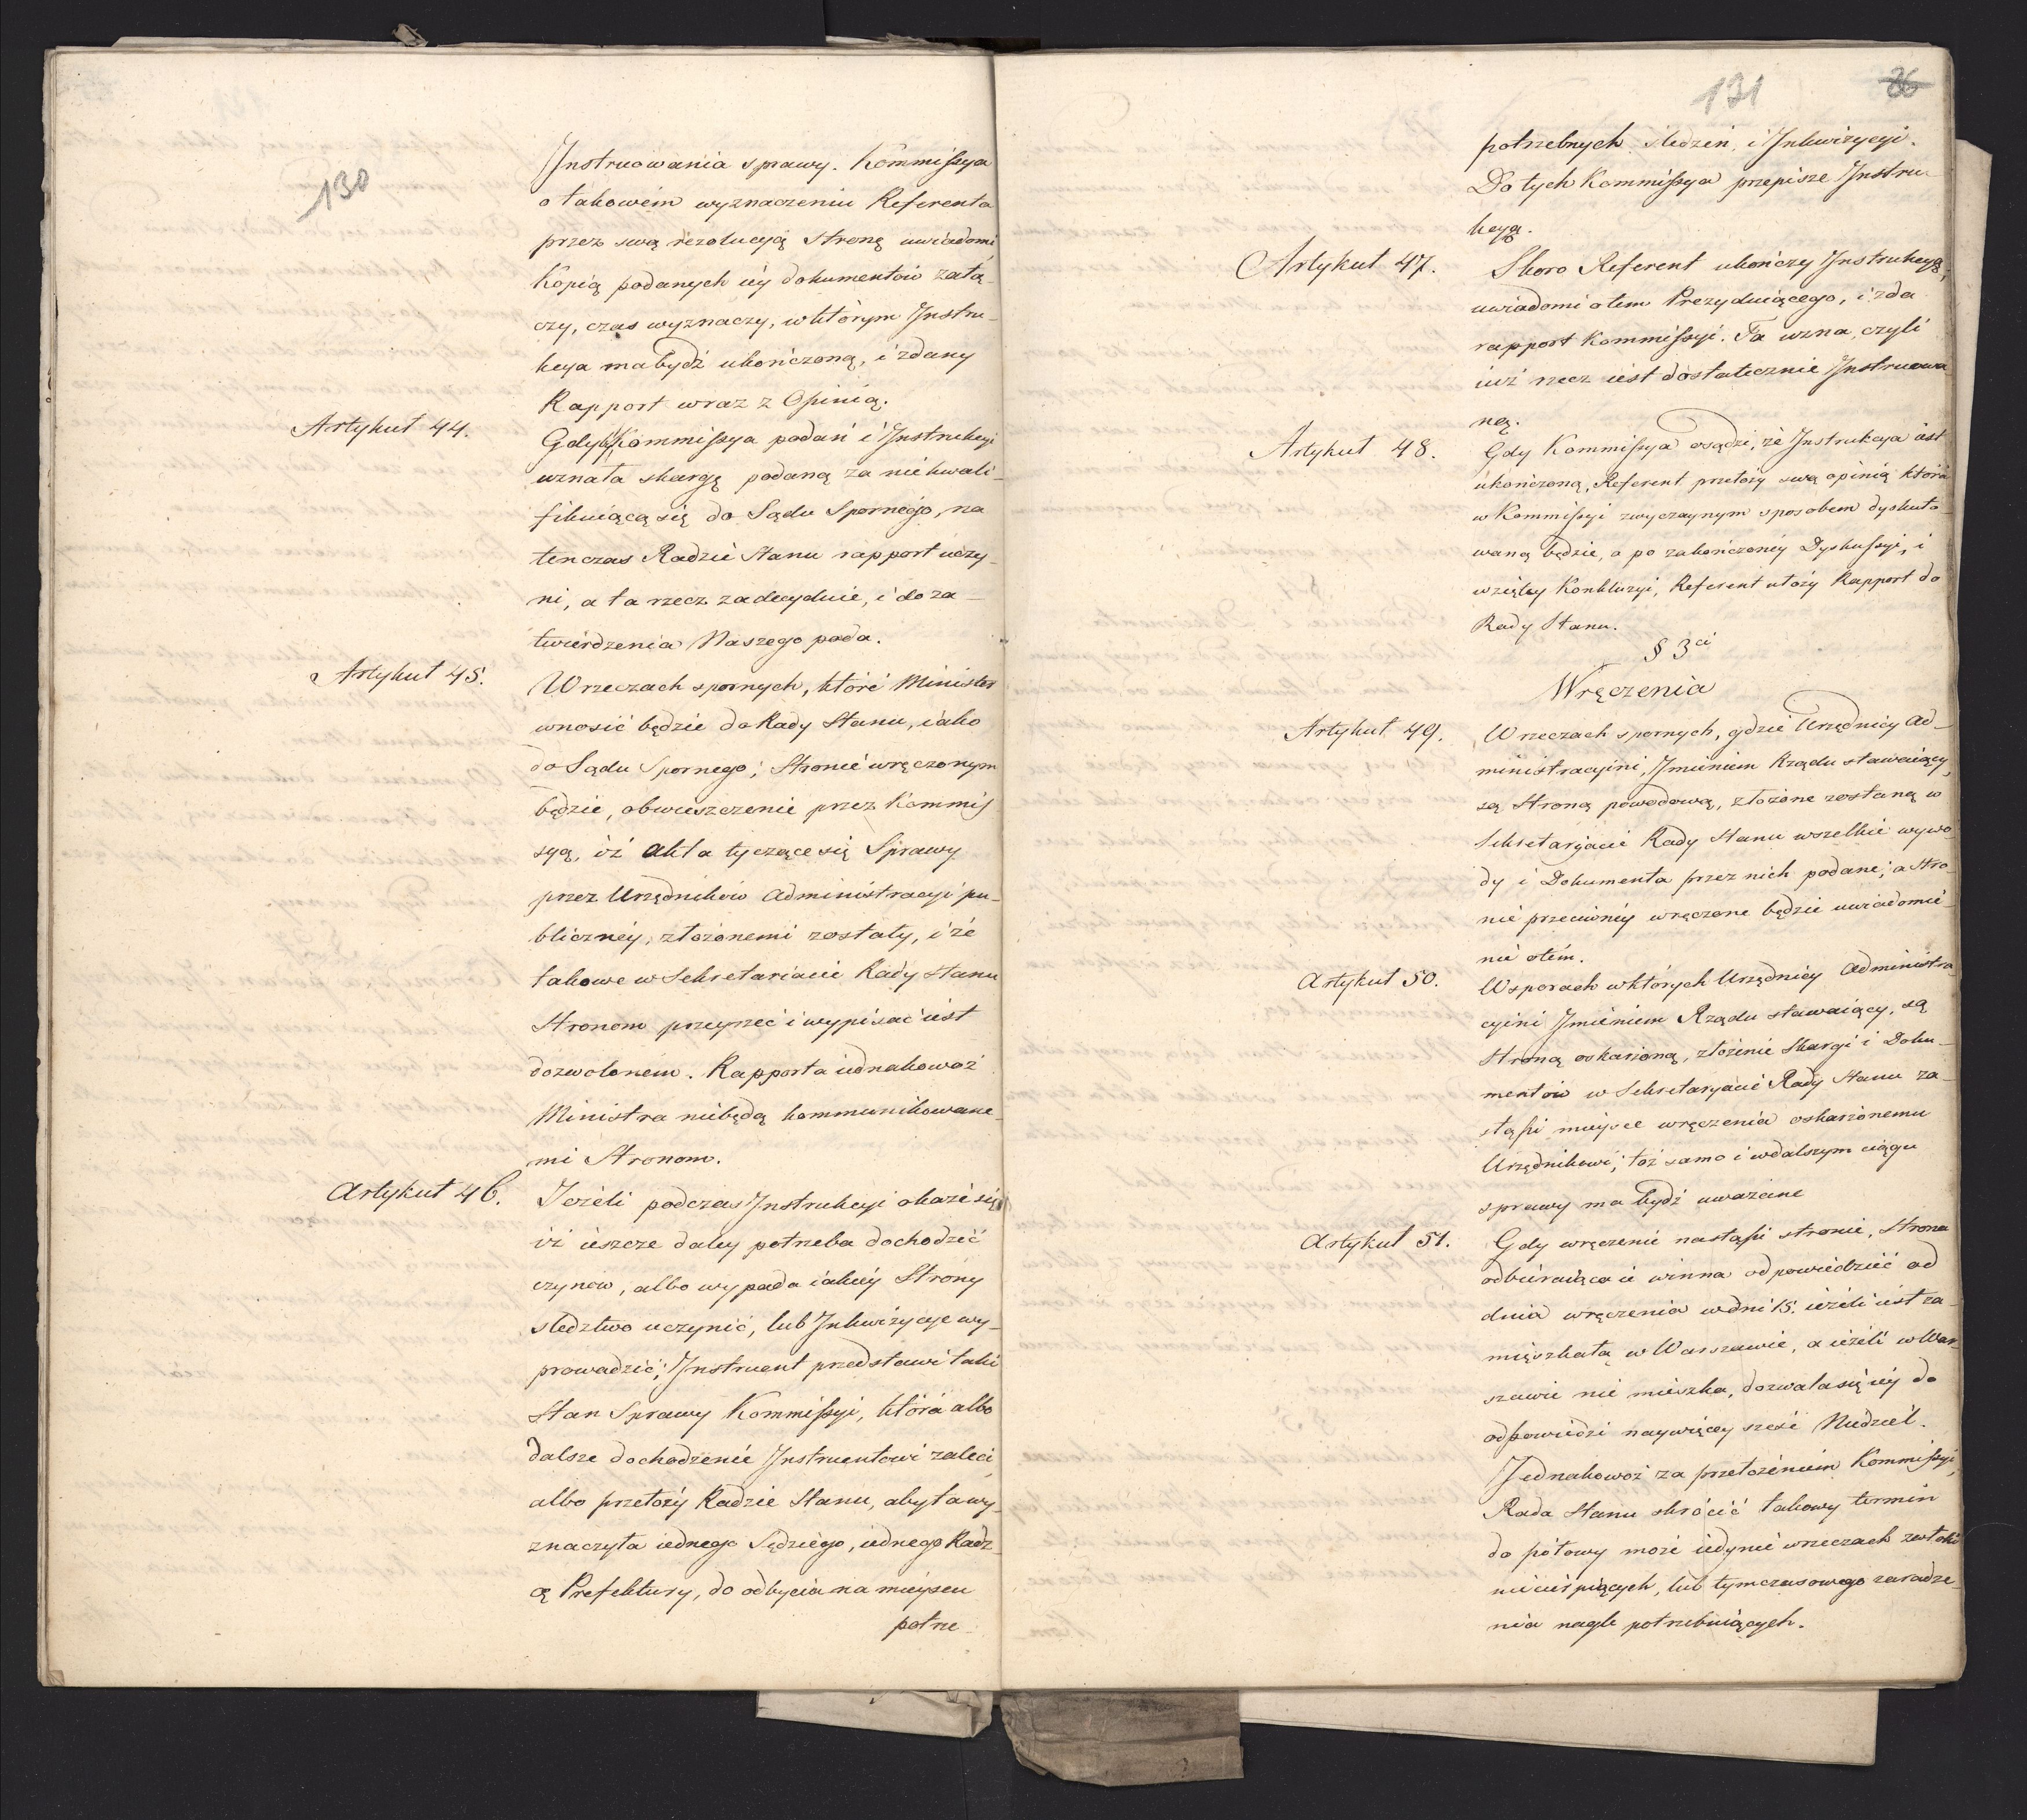 130
Instruowania sprawy. Kommissya
o takowém wyznaczeniu Referenta
przez swą rezolucyą stronę uwiadomi
Kopią podanych iéy dokumentów załą-
czy, czas wyznaczy, w którym Instru-
kcya ma bydź ukończoną, i zdany
Rapport wraz z Opinią.
Artykuł 44.
Gdyby Kommissya podań i Instrukcyi
uznała skargę podaną za niekwali-
fikuiącą się do Sądu Spornégo, na
tenczas Radzie Stanu rapport uczy-
ni, a ta rzecz zadecyduie, i do za-
twierdzenia Naszego poda.
Artykuł 45.
W rzeczach spornych, które Minister
wnosić będzie do Rady Stanu, iako
do Sądu Spornego; Stronie wręczonym
będzie, obwieszczenie przez Kommis
syą, iż akta tyczące się Sprawy
przez Urzędników administracyi pu-
bliczney, złożonemi zostały, i że
takowe w Sekretariacie Rady Stanu
Stronom przeyrzeć i wypisać iest
dozwolonem. Rapporta iednakowoż
Ministra niebędą kommunikowane-
mi Stronom.
Artykuł 46.
Jeżeli podczas Instrukcyi okaże się
iż ieszcze daley potrzeba dochodzić
czynów, albo wypada iakiéy Strony
śledztwo uczynić, lub Inkwizycye wy-
prowadzić; Instruent przedstawi taki
Stan Sprawy Kommissyi, która albo
dalsze dochodzenie Instruentowi zaleci
albo przełoży Radzie Stanu, aby ta wy-
znaczyła iednego Sędziego, iednego Radz-
cę Prefektury, do odbycia na mieyscu
potrze-
131
36
potrzebnych śledzeń, i Inkwizycyi.
Do tych Kommissya przepisze Instru-
kcyą.
Artykuł 47.
Skoro Referent ukończy Instrukcyą,
uwiadomi o tem Prezyduiącego, i zda
rapport Kommissyi. Ta uzna, czyli
iuż rzecz iest dostatecznie Instruowa
ną.
Artykuł 48.
Gdy Kommissya osądzi, że Instrukcya iest
ukończoną, Referent przełoży swą opinią która
w Kommissyi zwyczaynym sposobem dyskuto-
waną będzie, a po zakończonéy Dyskussyi, i
wziętey Konkluzyi, Referent ułoży Rapport do
Rady Stanu.
§ 3ci
Wręczenia
Artykuł 49.
W rzeczach spornych, gdzie Urzędnicy Ad-
ministracyini, Imieniem Rządu stawaiący,
są Stroną powodową, złożone zostaną w
Sekretaryacie Rady Stanu wszelkie wywo-
dy i Dokumenta przez nich podane; a Stro-
nie przeciwnéy wręczone będzie uwiadomie-
nie o tém.
Artykuł 50.
W sporach w których Urzędnicy administra-
cyini Imieniem Rządu stawaiący, są
Stroną oskarżoną, złożenie Skargi i Doku-
mentów w Sekretaryacie Rady Stanu za-
stąpi mieysce wręczenia oskarżonemu
Urzędnikowi; toż samo i w dalszym ciągu
sprawy ma bydź uważane
Artykuł 51.
Gdy wręczenie nastąpi stronie, Strona
odbieraiąca ie winna odpowiedzieć od
dnia wręczenia w dni 15. ieżeli iest za-
mięszkałą w Warszawie, a ieżeli w War-
szawie nie mieszka, dozwala się iéy do
odpowiedzi naywięcey sześć Niedziel.
Jednakowoż za przełożeniem Kommissyi,
Rada Stanu skrócić takowy termin
do połowy może iedynie w rzeczach zwłoki
niecierpiących, lub tymczasowego zaradze-
nia nagle potrzebuiących.